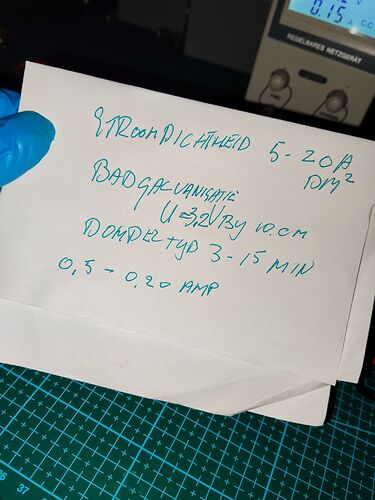 0.15
REGELBARES NETZGERÄT
STROOMDICHTHEID 5-20A
DM²
BADGALVANISATIE
U=3,2V By 10.cm
DOMPELTYD 3-15 MIN
0,5 - 0,20 AMP
37